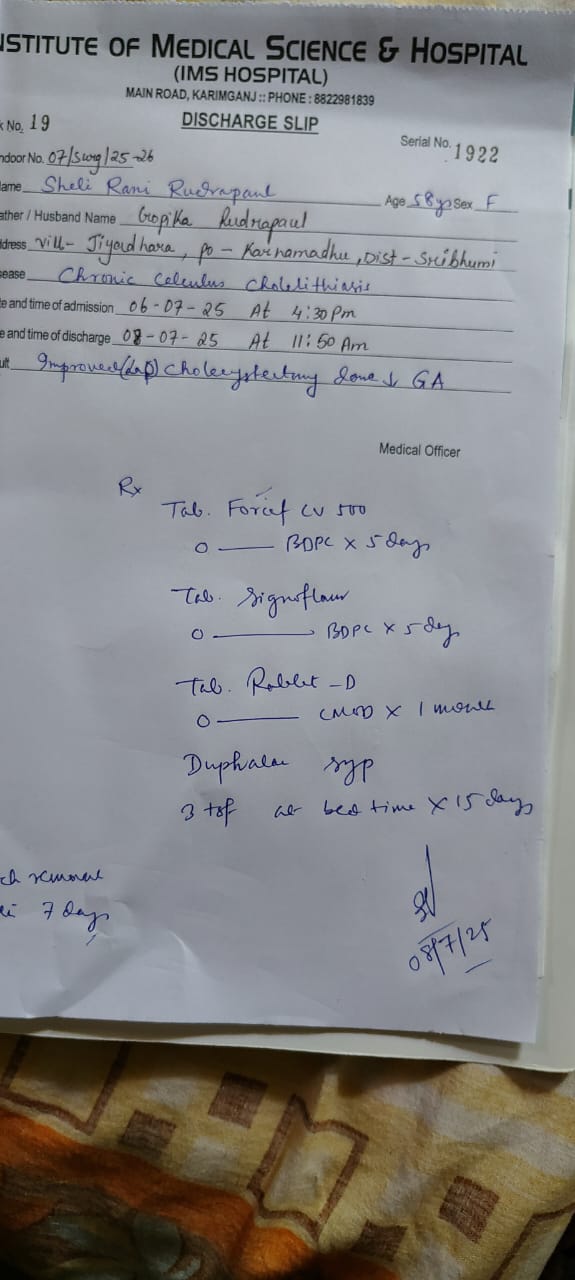 NSTITUTE OF MEDICAL SCIENCE & HOSPITAL
(IMS HOSPITAL)
MAIN ROAD, KARIMGANJ :: PHONE : 8822981839
k No. 19
DISCHARGE SLIP
Serial No. 1922
ndoor No. 07/Surg/25-26
ame Sheli Rani Rudrapaul Age 58 yrs Sex F
ather / Husband Name Gopika Rudrapaul
dress Vill- Jiyadhara, PO - Karnamadhu, Dist - Sribhumi
sease Chronic Calculus Cholelithiasis
te and time of admission 06-07-25 At 4:30 Pm
e and time of discharge 08-07-25 At 11:50 Am
ult Improved (Lap) Cholecystectomy done ↓ GA
Medical Officer
Rx
Tab. Forcef CV 500
o — BDPC X 5 days
Tab. Signoflam
o — BDPC X 5 day
Tab. Rablet - D
o — X 1 month
Duphalac syp
3 tsf at bed time X 15 days
ch removal
7 days
08/7/25